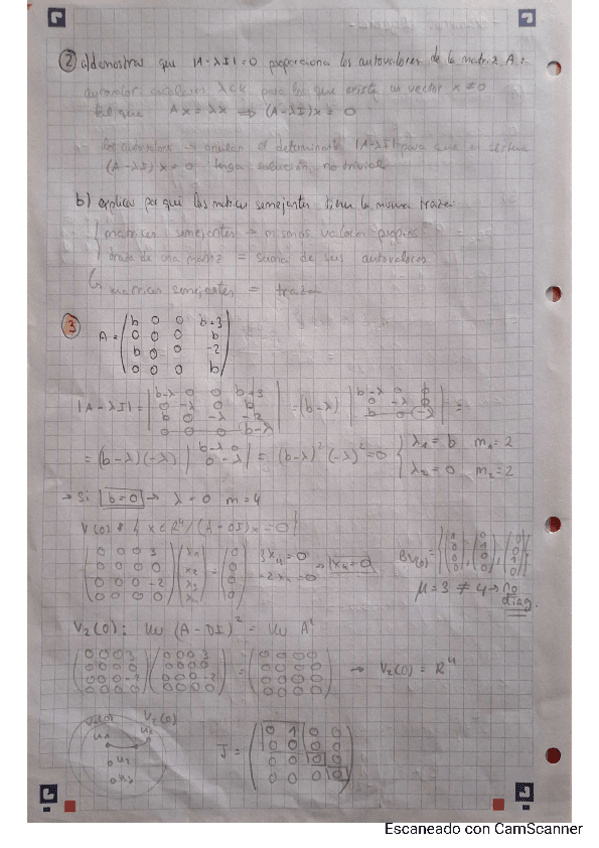 ② a) demostrar que |A-λI|=0 proporciona los autovalores de la matriz A:
autovalor: λ∈K para los que existe un vector x≠0
tal que Ax=λx ⇒ (A-λI)x=0
los autovalores → anulan el determinante |A-λI| para que el sistema
(A-λI)x=0 tenga solución no trivial
b) explicar por qué las matrices semejantes tienen la misma traza:
matrices semejantes → mismos valores propios
traza de una matriz = suma de sus autovalores
↳ matrices semejantes = traza
③ A = (b 0 0 b+3
0 0 0 b
b 0 0 -2
0 0 0 b)
|A-λI| = |b-λ 0 0 b+3
0 -λ 0 b
b 0 -λ -2
0 0 0 b-λ| = (b-λ) |b-λ 0 0
0 -λ 0
b 0 -λ| =
= (b-λ)(-λ) |b-λ 0
0 -λ| = (b-λ)²(-λ)²=0 { λ₁=b m₁=2
λ₂=0 m₂=2
→ Si b=0 → λ=0 m=4
V(0) { x∈R⁴/(A-0I)x=0}
(0 0 0 3
0 0 0 0
0 0 0 -2
0 0 0 0) (x₁
x₂
x₃
x₄) = (0
0
0
0) 3x₄=0
-2x₄=0 → x₄=0
BV(0) = {(1
0
0
0), (0
1
0
0), (0
0
1
0)}
μ=3 ≠ 4 → no
diag.
V₂(0): Ker (A-0I)² = Ker A²
(0 0 0 3
0 0 0 0
0 0 0 -2
0 0 0 0) (0 0 0 3
0 0 0 0
0 0 0 -2
0 0 0 0) = (0 0 0 0
0 0 0 0
0 0 0 0
0 0 0 0) → V₂(0) = R⁴
V₁(0) V₂(0)
u₁
u₂
u₃
J = (0 1 0 0
0 0 0 0
0 0 0 0
0 0 0 0)
Escaneado con CamScanner